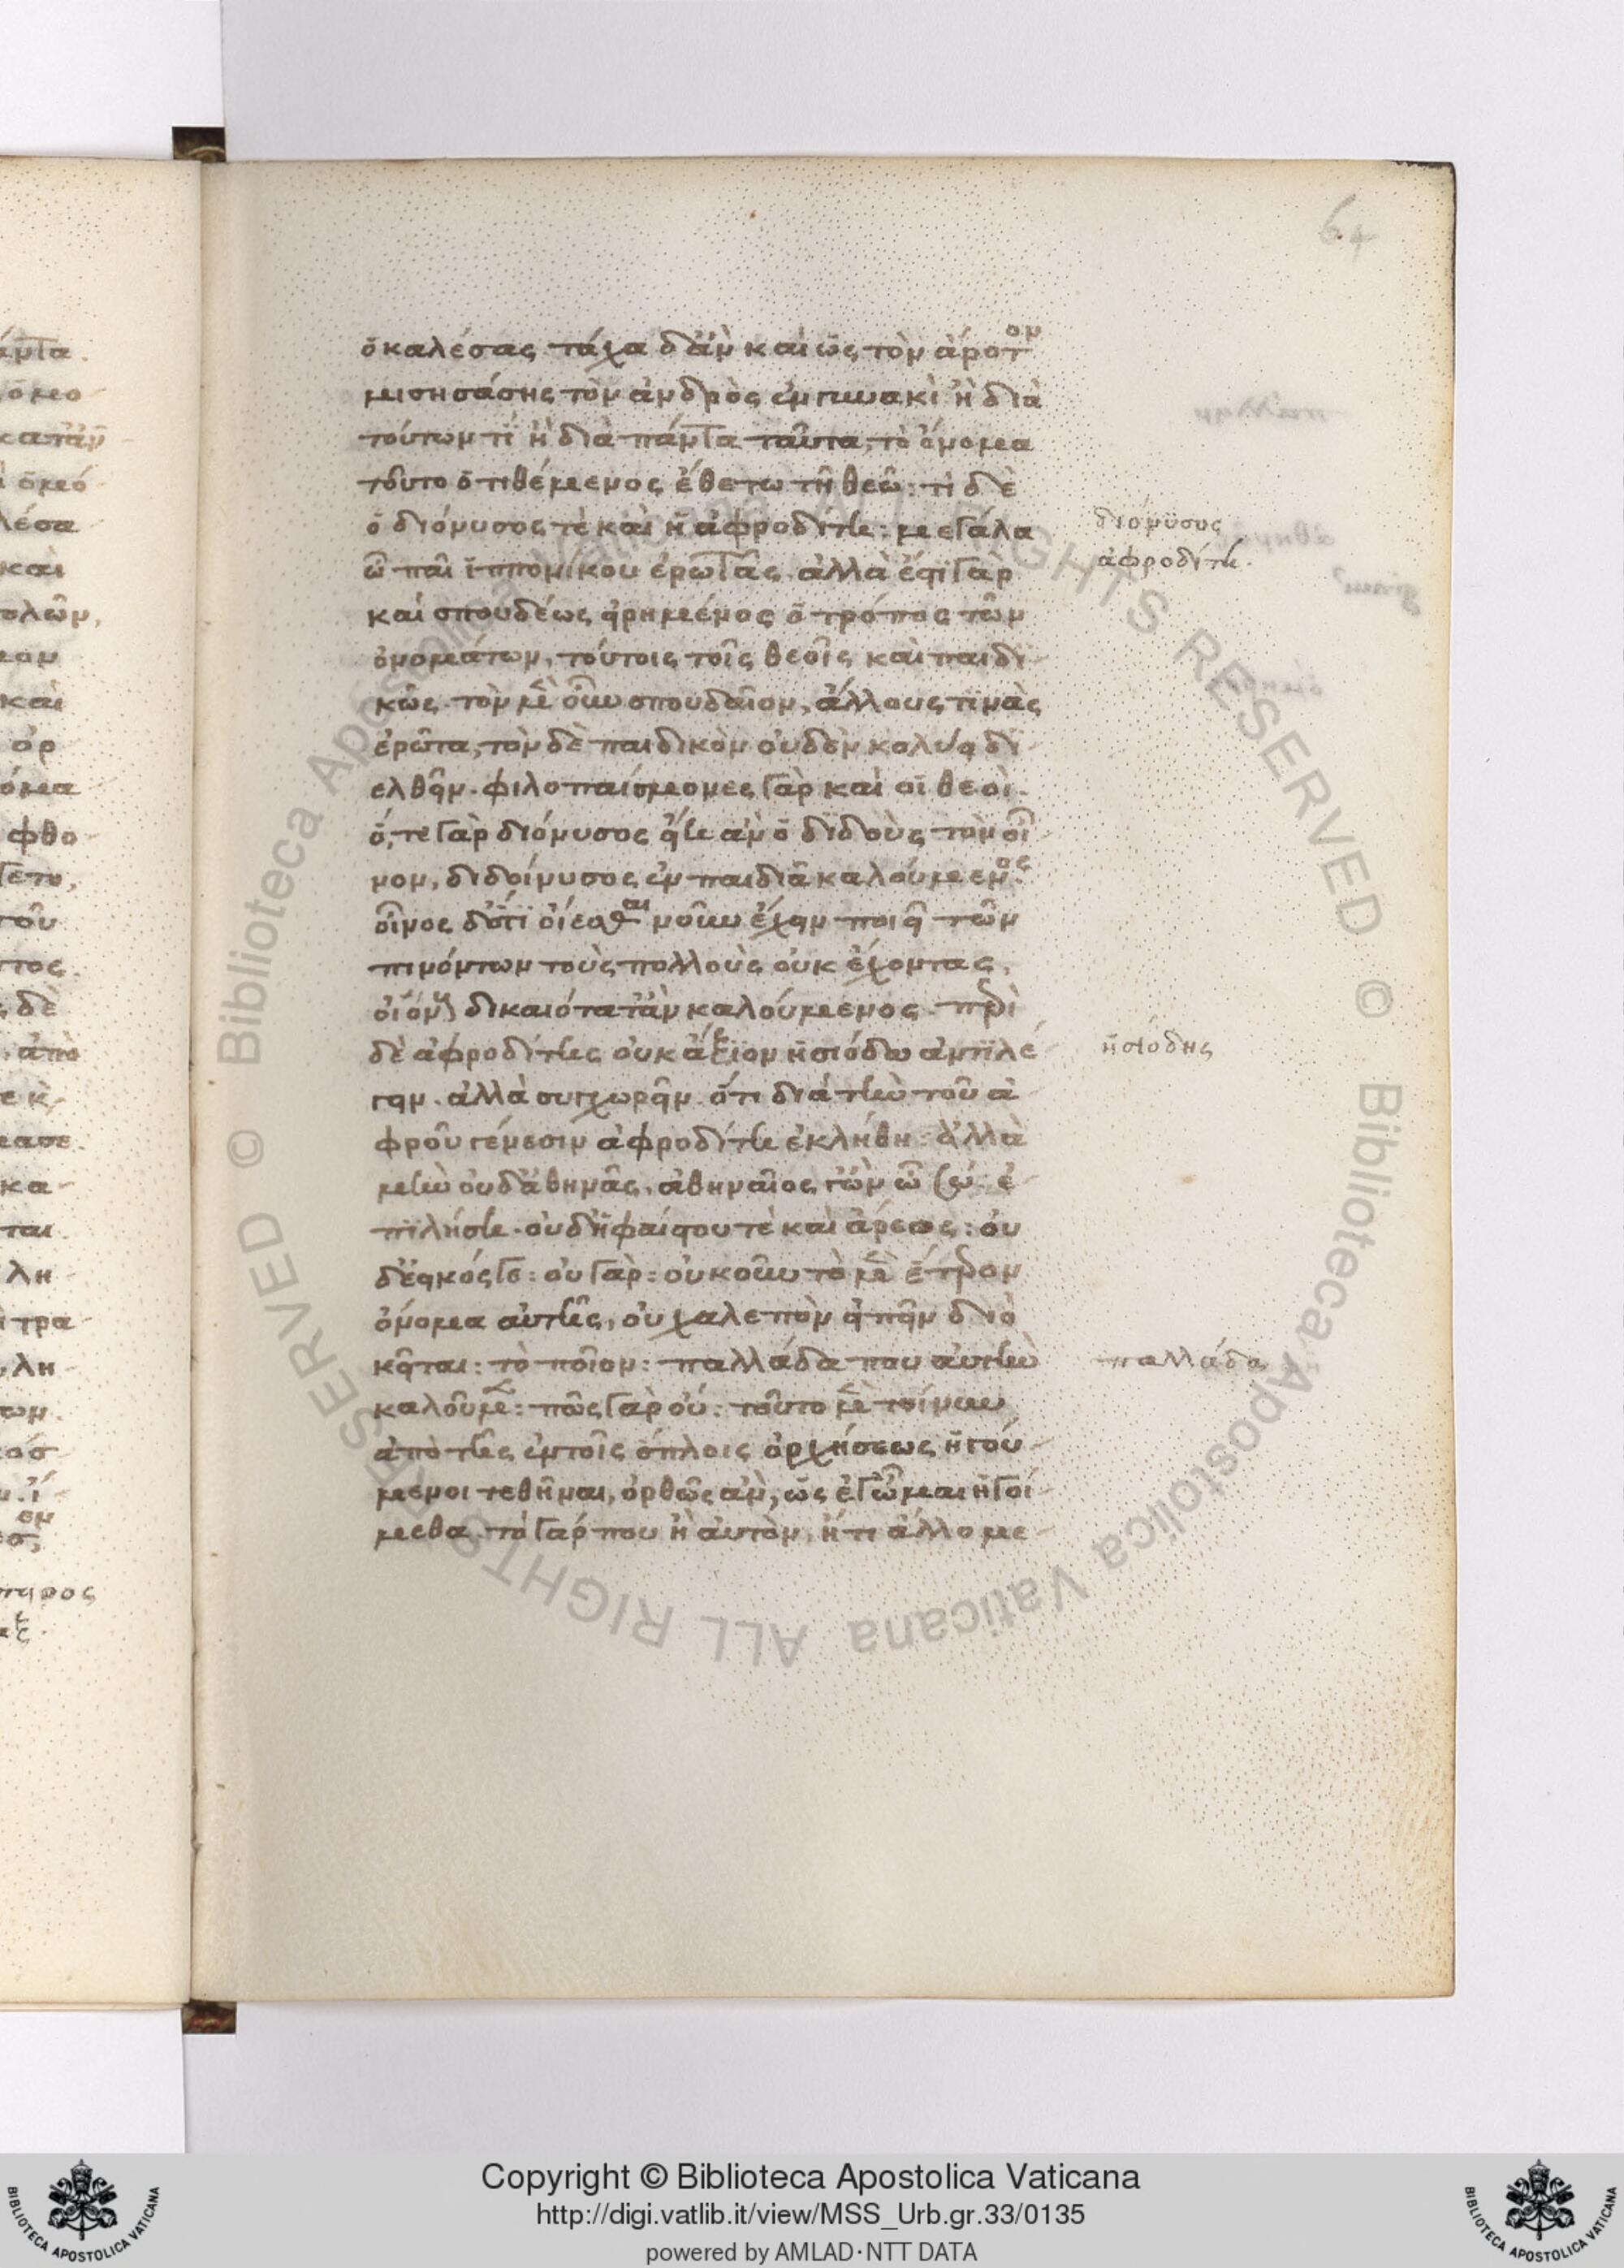 64
ὁ καλέσας. τάχα δ' ἂν καὶ ὡς τὸν ἄροτον
μισησάσης τὸν ἀνδρὸς ἐν γυναικὶ ἢ διὰ
τούτων τί ἢ διὰ πάντα ταῦτα, τὸ ὄνομα
τοῦτο ὁ τιθέμενος ἔθετο τῆ θεῶ: τί δὲ
ὁ διόνυσος τὲ καὶ ἡ ἀφροδίτη: μεγάλα
ὦ παῖ ἱππονίκου ἐρωτᾶς. ἀλλὰ ἔστι γὰρ
καὶ σπουδέως εἰρημένος ὁ τρόπος τῶν
ὀνομάτων, τούτοις τοῖς θεοῖς καὶ παιδι
κῶς. τὸν μὲν οὖν σπουδαῖον, ἄλλους τινὰς
ἐρῶτα, τὸν δὲ παιδικὸν οὐδὲν κωλύει δι
ελθεῖν. φιλοπαίσμονες γὰρ καὶ οἱ θεοί.
ὅ,τε γὰρ διόνυσος εἴη ἂν ὁ διδοὺς τὸν οἶ
νον, διδοίνυσος ἐν παιδιᾶ καλούμενος.
οἶνος δ' ὅτι οἴεσθαι νοῦν ἔχειν ποιεῖ τῶν
πινόντων τοὺς πολλοὺς οὐκ ἔχοντας,
οἰόνους δικαιότατ' ἂν καλούμενος. περὶ
δὲ ἀφροδίτης οὐκ ἄξιον ἡσιόδω ἀντιλέ
γειν. ἀλλὰ συγχωρεῖν. ὅτι διὰ τὴν τοῦ ἀ
φροῦ γένεσιν ἀφροδίτη ἐκλήθη: ἀλλὰ
μὴν οὐδ' ἀθηνᾶς, ἀθηναῖος γ' ὢν ὦ σώ. ἐ
πιλήση. οὐδ' ἡφαίστου τὲ καὶ ἄρεως: οὐ
δ' εἰκός γε: οὐ γάρ: οὐκοῦν τὸ μὲν ἕτερον
ὄνομα αὐτῆς, οὐ χαλεπὸν εἰπεῖν διὸ
κεῖται: τὸ ποῖον: παλλάδα που αὐτὴν
καλοῦμεν: πῶς γὰρ οὔ: τοῦτο μὲν τοίνυν
ἀπὸ τῆς ἐν τοῖς ὅπλοις ὀρχήσεως ἡγού
μενοι τεθῆναι, ὀρθῶς ἂν, ὡς ἐγὦμαι ἡγοί
μεθα. τὸ γάρ που ἢ αὑτὸν, ἤ τι ἄλλο με
διόνυσος
ἀφροδίτη.
ἡσιόδης
παλλάδα
Copyright © Biblioteca Apostolica Vaticana
http://digi.vatlib.it/view/MSS_Urb.gr.33/0135
powered by AMLAD·NTT DATA
BIBLIOTECA APOSTOLICA VATICANA
BIBLIOTECA APOSTOLICA VATICANA
© Biblioteca Apostolica Vaticana ALL RIGHTS RESERVED